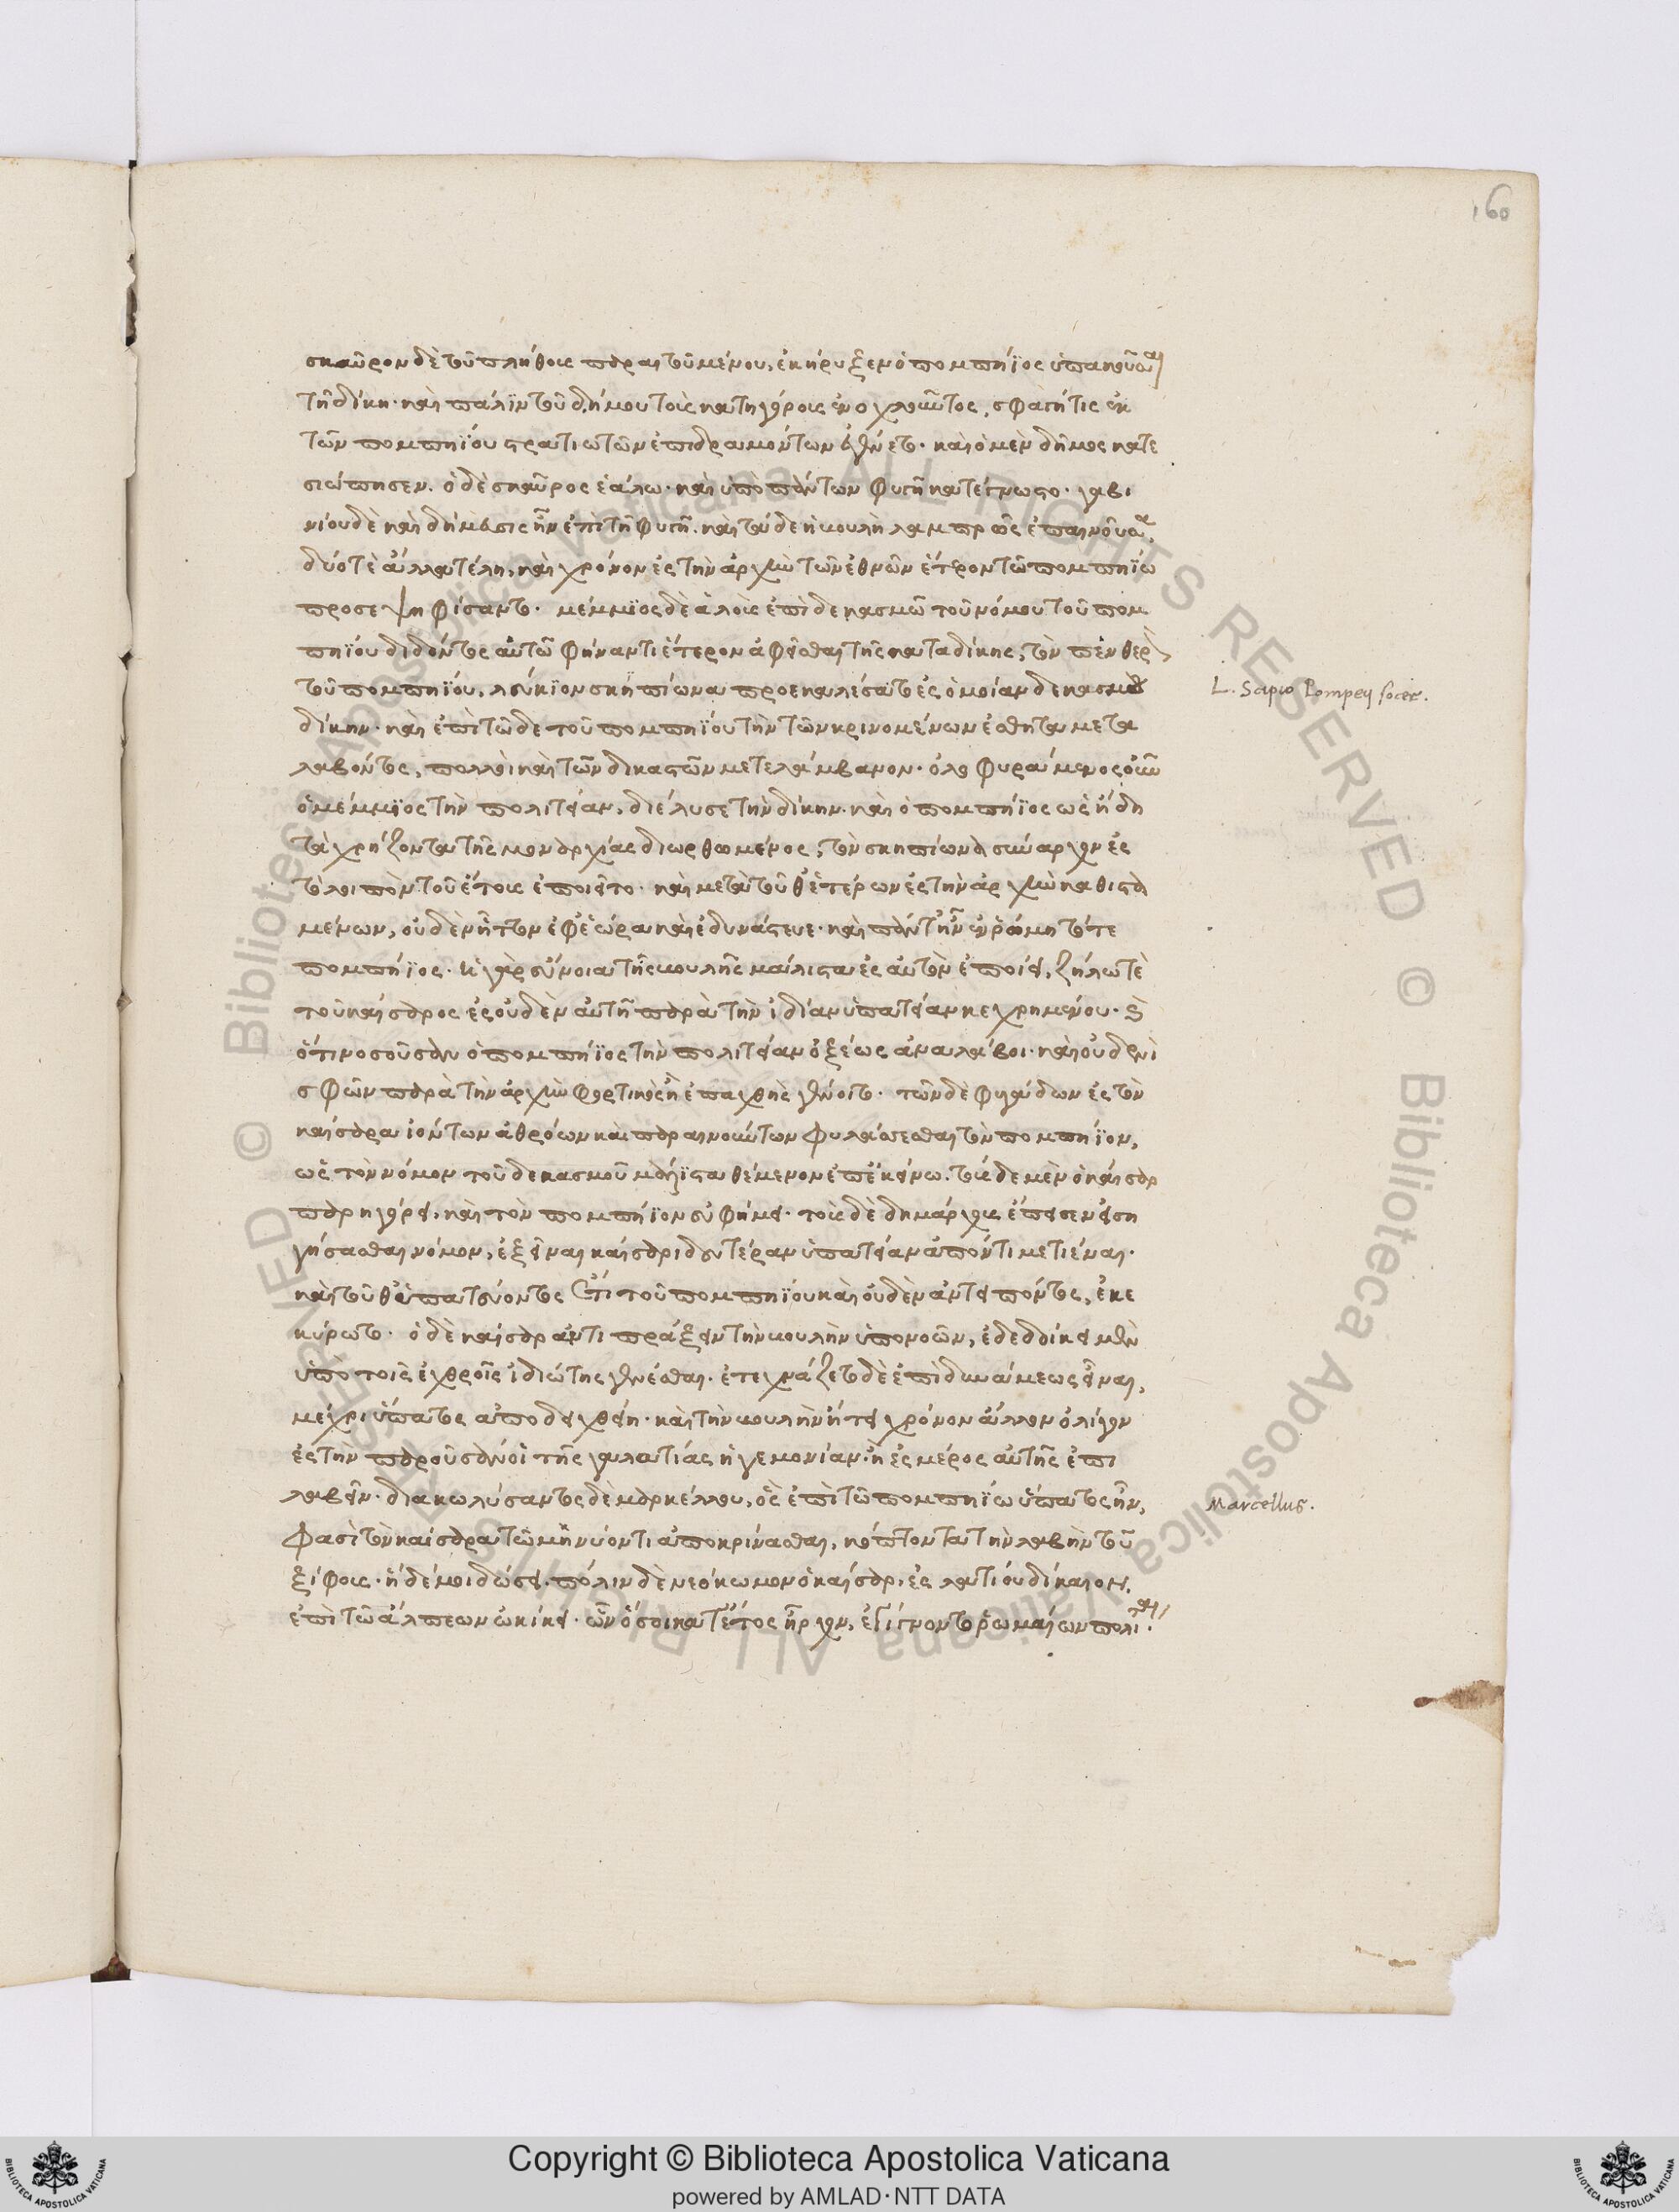 160
σκαῦρον δὲ τοῦ πλήθους παραιτουμένου, ἐκήρυξεν ὁ πομπήϊος ὑπακοῦσαι
τῇ δίκῃ· καὶ πάλιν τοῦ δήμου τοὺς κατηγόρους ἐνοχλοῦντος, σφαγή τις ἐκ
τῶν πομπηΐου στρατιωτῶν ἐπιδραμόντων ἐγένετο· καὶ ὁ μὲν δῆμος κατε
σιώπησεν. ὁ δὲ σκαῦρος ἑάλω· καὶ ὑπὸ πάντων φυγὴ κατέγνωστο· γαβι
νίου δὲ καὶ δήμευσις ἦν ἐπὶ τῇ φυγῇ. καὶ τάδε ἡ βουλὴ λαμπρῶς ἐπαινοῦσα,
δύο τὲ ἄλλα τέλη, καὶ χρόνον ἐς τὴν ἀρχὴν τῶν ἐθνῶν ἕτερον τῶ πομπηΐω
προσεψηφίσαντο. μέμμϊος δὲ ἁλοὺς ἐπὶ δεκασμῶ τοῦ νόμου τοῦ πομ
πηΐου διδόντος αὐτῶ φήναντι ἕτερον ἀφεῖσθαι τῆς καταδίκης, τὸν πενθερὸν
τοῦ πομπηΐου, λεύκιον σκηπίωνα προεκαλέσατο ἐς ὁμοίαν δεκασμοῦ
δίκην· καὶ ἐπὶ τῶδε τοῦ πομπηΐου τὴν τῶν κρινομένων ἐσθῆτα μετα
λαβόντος, πολλοὶ καὶ τῶν δικαστῶν μετελάμβανον· ὀλοφυράμενος οὖν
ὁ μέμμϊος τὴν πολιτείαν, διέλυσε τὴν δίκην· καὶ ὁ πομπήϊος ὡς ἤδη
τὰ χρήζοντα τῆς μοναρχίας διωρθωμένος, τὸν σκηπίωνα σύναρχον ἐς
τὸ λοιπὸν τοῦ ἔτους ἐποιεῖτο· καὶ μετὰ τοῦθ' ἑτέρων ἐς τὴν ἀρχὴν καθιστα
μένων, οὐδὲν ἧττον ἐφεώρα καὶ ἐδυνάστευε· καὶ πάντ' ἦν ἐν ῥώμη τότε
πομπήϊος. ἡ γὰρ εὔνοια τῆς βουλῆς μάλιστα ἐς αὐτὸν ἐποίει, ζήλω τὲ
τοῦ καίσαρος ἐς οὐδὲν αὐτῇ παρὰ τὴν ἰδίαν ὑπατείαν κεχρημένου· καὶ
ὅτι νοσοῦσαν ὁ πομπήϊος τὴν πολιτείαν ὀξέως ἀναλάβοι· καὶ οὐδενὶ
σφῶν παρὰ τὴν ἀρχὴν φορτικὸς ἢ ἐπαχθὴς γένοιτο. τῶν δὲ φυγάδων ἐς τὸν
καίσαρα ἰόντων ἀθρόων καὶ παραινούντων φυλάσσεσθαι τὸν πομπήϊον,
ὡς τὸν νόμον τοῦ δεκασμοῦ μάλιστα θέμενον ἐπ' ἐκείνω. τούσδε μὲν ὁ καίσαρ
παρηγόρει, καὶ τὸν πομπήϊον εὐφήμει· τοὺς δὲ δημάρχους ἔπεισεν εἰση
γήσασθαι νόμον, ἐξεῖναι καίσαρι δευτέραν ὑπατείαν ἀπόντι μετιέναι.
καὶ τοῦθ' ὑπατεύοντος ἔτι τοῦ πομπηΐου καὶ οὐδὲν ἀντειπόντος, ἐκε
κύρωτο. ὁ δὲ καίσαρ ἀντιπράξειν τὴν βουλὴν ὑπονοῶν, ἐδεδοίκει μὲν
ὑπὸ τοῖς ἐχθροῖς ἰδιώτης γενέσθαι. ἐτεχνάζετο δὲ ἐπὶ δυνάμεως εἶναι,
μέχρι ὕπατος ἀποδειχθείη· καὶ τὴν βουλὴν ᾔτει χρόνον ἄλλον ὀλίγον
ἐς τὴν παροῦσάν οἱ τῆς γαλατίας ἡγεμονίαν· ἢ ἐς μέρος αὐτῆς ἐπι
λαβεῖν. διακωλύσαντος δὲ μαρκέλλου, ὃς ἐπὶ τῶ πομπηΐω ὕπατος ἦν,
φασὶ τὸν καίσαρα τῶ μηνύοντι ἀποκρίνασθαι, κόπτοντα τὴν λαβὴν τοῦ
ξίφους· ἥδέ μοι δώσει. πόλιν δὲ νεόκωμον ὁ καίσαρ, ἐς λατίου δίκαιον,
ἐπὶ τῶ ἄλπεων ὠκίκει· ὧν ὅσοι κατ' ἔτος ἦρχον, ἐγίγνοντο ῥωμαίων πολῖται·
L. Scipio Pompeij socer.
Marcellus.